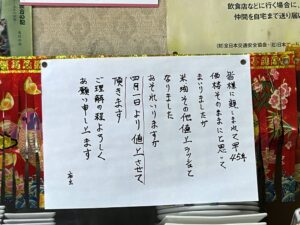 飲食店などに行く場合に、
仲間を自宅まで送り届
(財)全日本交通安全協会
皆様に親しまれて早45年
価格そのままにと思って
まいりましたが
米、肉その他値上ラッシュと
なりました
おそれいりますが
四月一日より値上させて
頂きます
ご理解の程よろしく
お願い申し上ます
店主